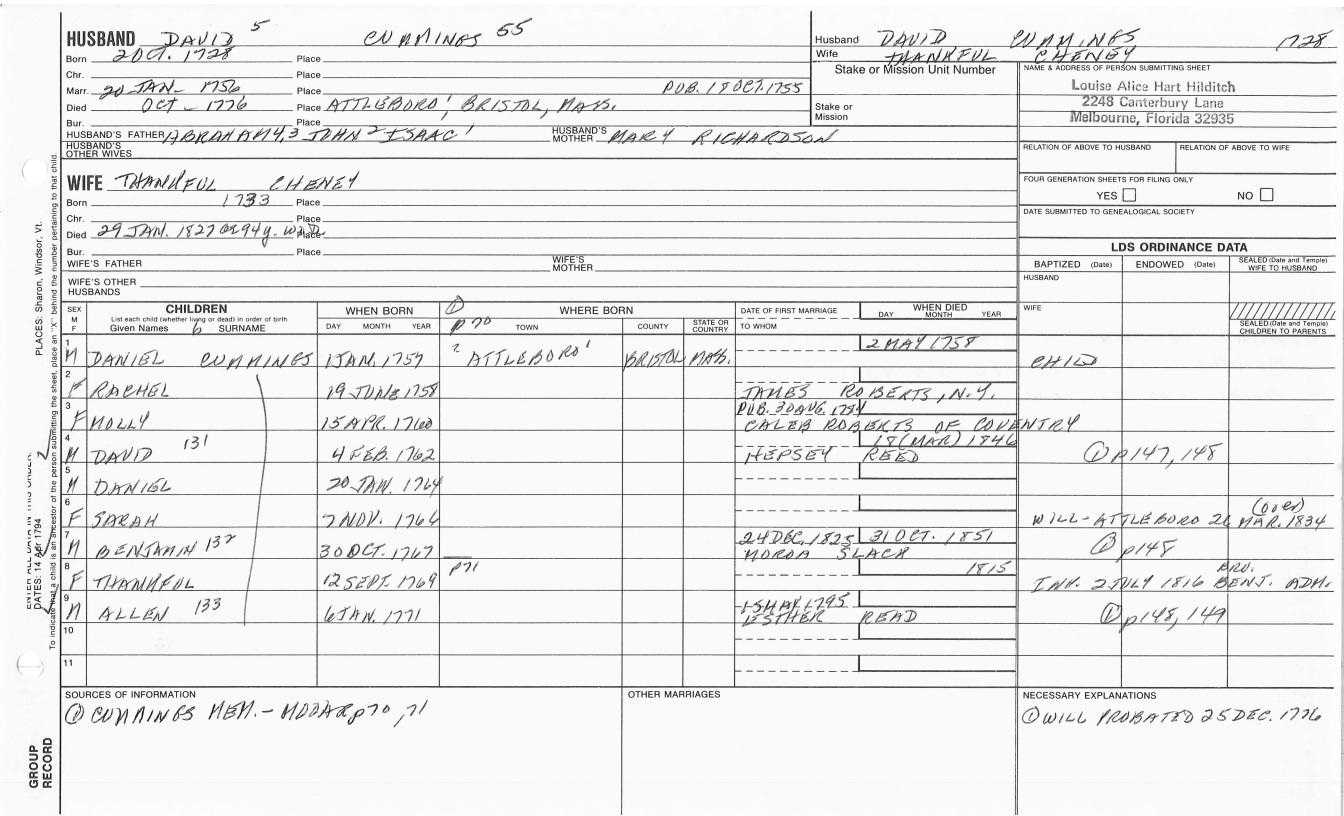 HUSBAND DAVID 5 CUMMINGS 55
Born 2 OCT. 1728 Place
Chr. Place
Marr. 20 JAN. 1756 Place PUB. 18 OCT. 1755
Died OCT - 1776 Place ATTLEBORO', BRISTOL, MASS.
Bur. Place
HUSBAND'S FATHER ABRAHAM 4, 3 JOHN 2 ISAAC 1 HUSBAND'S MOTHER MARY RICHARDSON
HUSBAND'S OTHER WIVES
WIFE THANKFUL CHENEY
Born 1733 Place
Chr. Place
Died 29 JAN. 1827 94 y. Place
Bur. Place
WIFE'S FATHER WIFE'S MOTHER
WIFE'S OTHER HUSBANDS
Husband DAVID CUMMINGS 1728
Wife THANKFUL CHENEY
Stake or Mission Unit Number
Stake or Mission
NAME & ADDRESS OF PERSON SUBMITTING SHEET
Louise Alice Hart Hilditch
2248 Canterbury Lane
Melbourne, Florida 32935
RELATION OF ABOVE TO HUSBAND RELATION OF ABOVE TO WIFE
FOUR GENERATION SHEETS FOR FILING ONLY
YES NO
DATE SUBMITTED TO GENEALOGICAL SOCIETY
LDS ORDINANCE DATA
BAPTIZED (Date) ENDOWED (Date) SEALED (Date and Temple) WIFE TO HUSBAND
HUSBAND
WIFE
SEALED (Date and Temple) CHILDREN TO PARENTS
SEX M F CHILDREN WHEN BORN 1 WHERE BORN DATE OF FIRST MARRIAGE WHEN DIED
List each child (whether living or dead) in order of birth
Given Names 6 SURNAME DAY MONTH YEAR p 70 TOWN COUNTY STATE OR COUNTRY TO WHOM DAY MONTH YEAR
1 M DANIEL CUMMINGS 1 JAN. 1757 ? ATTLEBORO' BRISTOL MASS. 2 MAY 1758 CHILD
2 F RACHEL 19 JUNE 1758 JAMES ROBERTS, N.Y.
3 F MOLLY 15 APR. 1760 PUB. 30 AUG. CALEB ROBERTS OF COVENTRY
4 M DAVID 131 4 FEB. 1762 HEPSEY REED 18 (MAR) 1846 1 p147, 148
5 M DANIEL 20 JAN. 1764
6 F SARAH 7 NOV. 1766 WILL - ATTLEBORO MAR. 1834 (over)
7 M BENJAMIN 132 30 OCT. 1767 24 DEC. 1825 31 OCT. 1851 SLACK 1 p148
8 F THANKFUL 12 SEPT. 1769 p71 1815 INV. 2 JULY 1816 BRO. BENJ. ADM.
9 M ALLEN 133 6 JAN. 1771 MAY 1795 ESTHER READ 1 p148, 149
10
11
SOURCES OF INFORMATION
1 CUMMINGS MEM. - MOOAR p70, 71
OTHER MARRIAGES
NECESSARY EXPLANATIONS
1 WILL PROBATED 25 DEC. 1776
GROUP RECORD
DATES: 14 Apr 1794
PLACES: Sharon, Windsor, Vt.
To indicate that a child is an ancestor of the person submitting the sheet, place an "X" behind the number pertaining to that child.